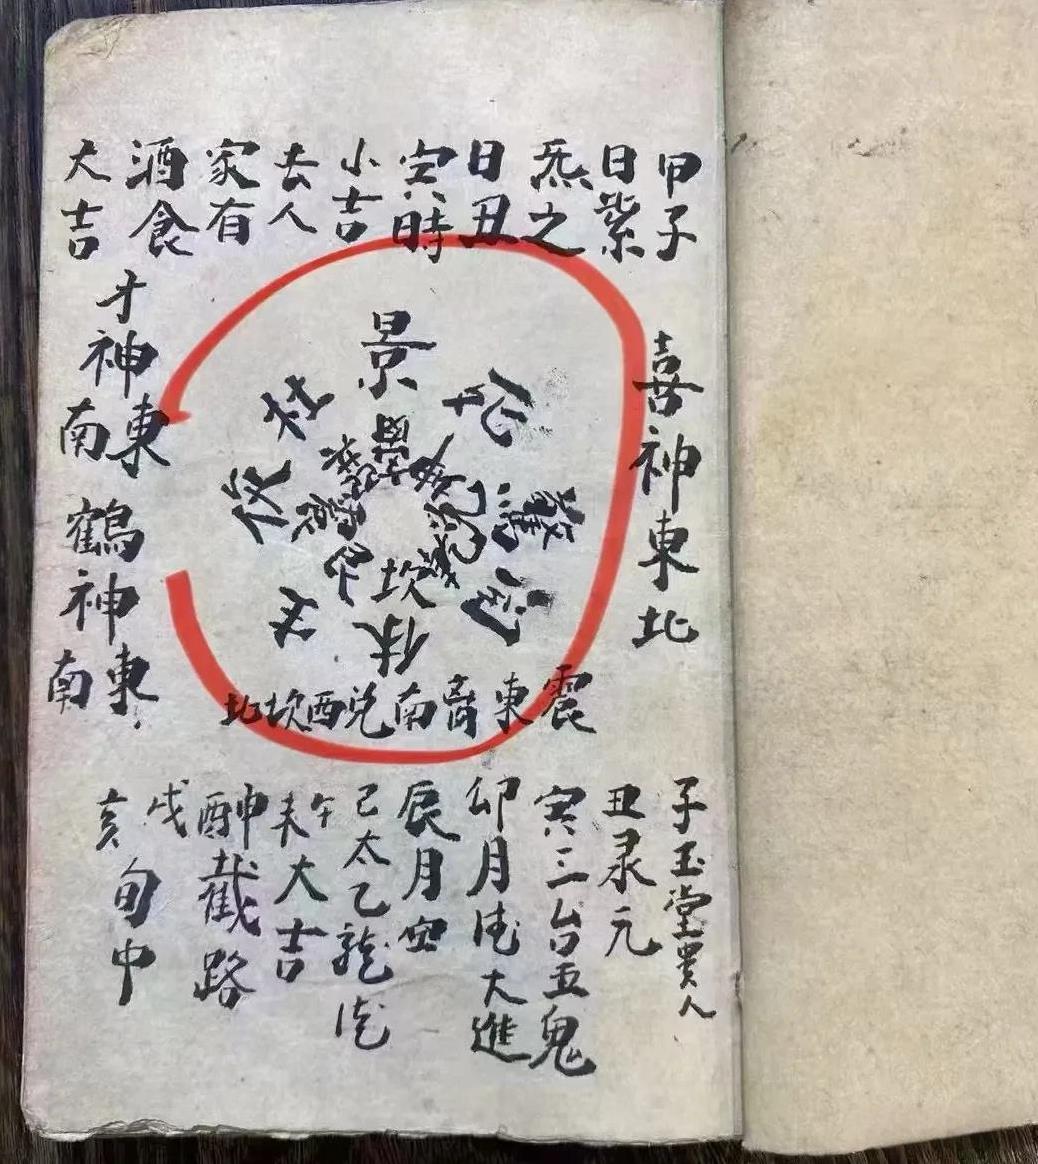 甲子
日紫
炁之
日丑
寅時
小吉
去人
家有
酒食
大吉
喜神東北
景
死
驚
開
休
生
杜
坎
震東离南兌西坎北
才神東南
鶴神東南
子玉堂貴人
丑录元
寅三台五鬼
卯月德大進
辰月空
巳太乙龍德
午未大吉
申酉截路
戌亥旬中